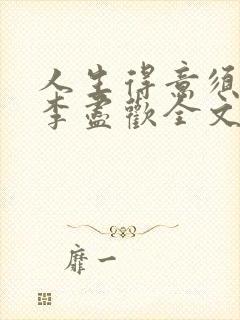 人生得意须
李盡歡全文
靡一